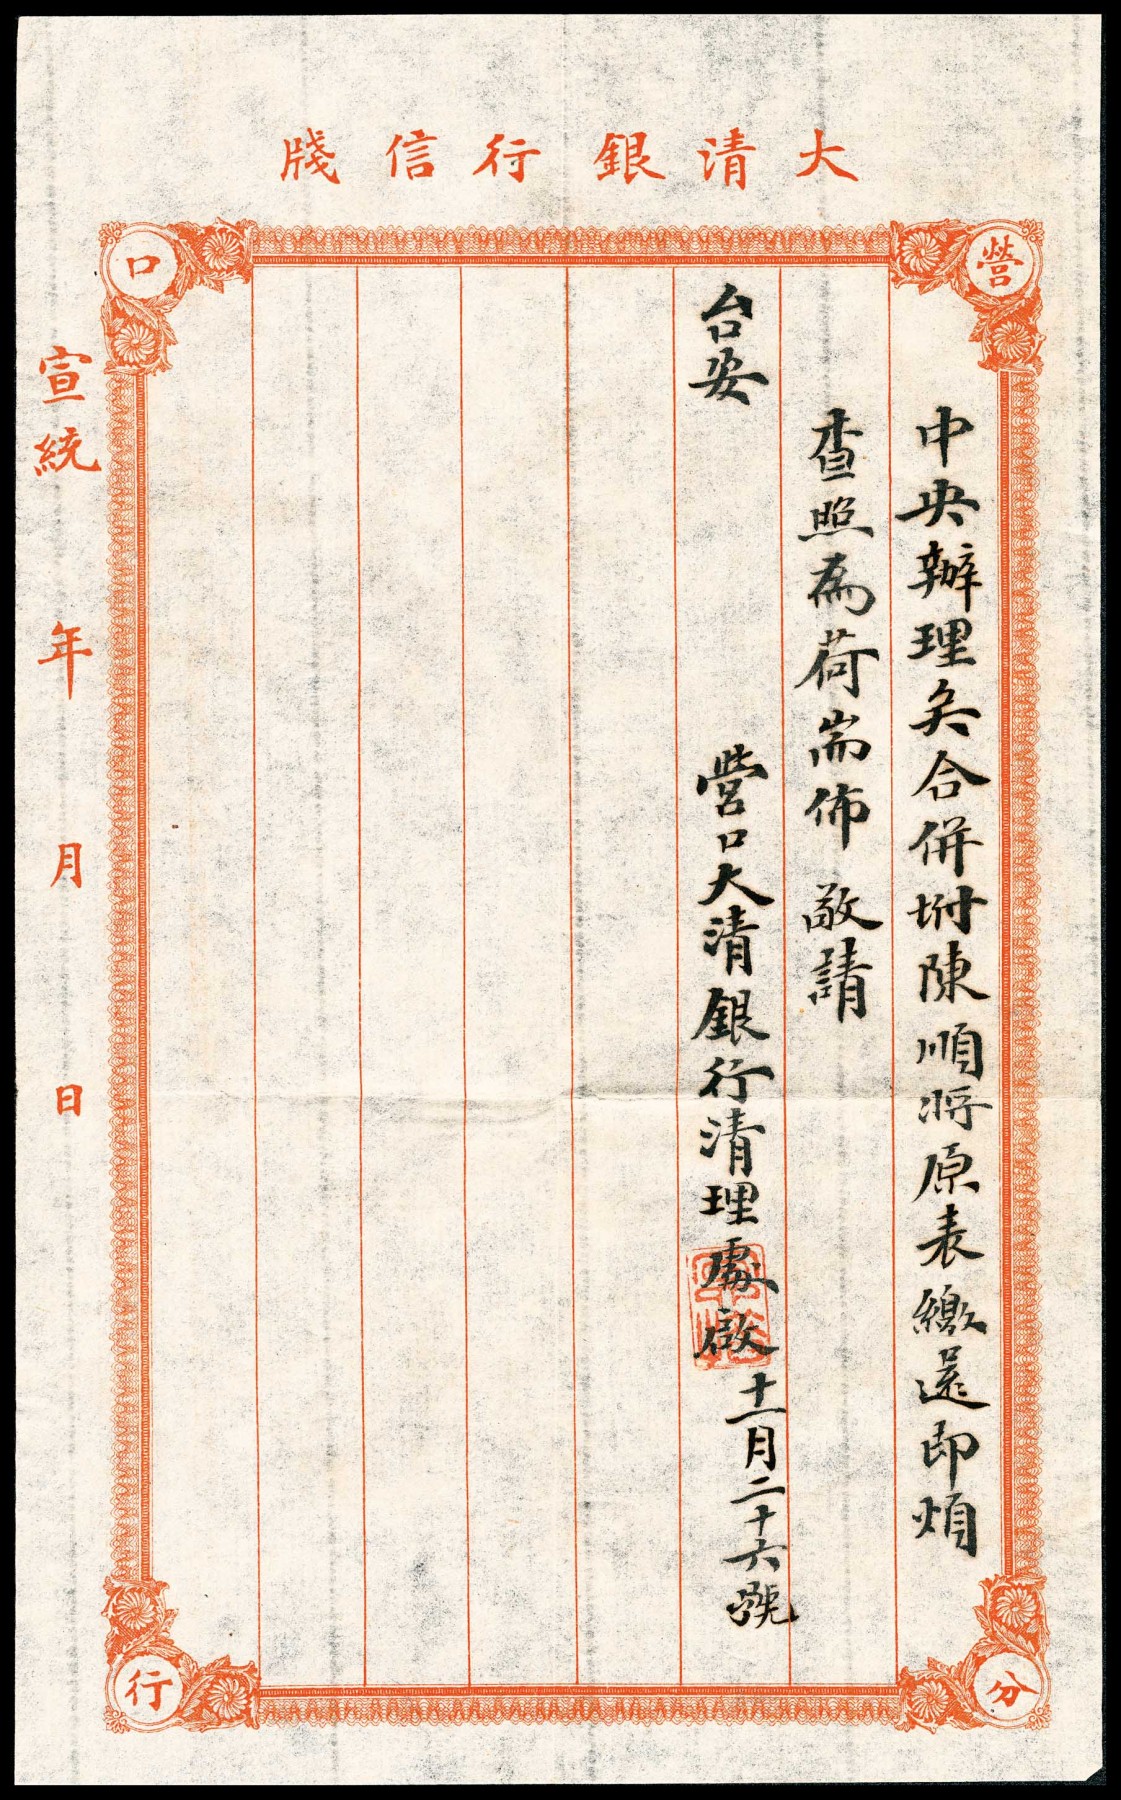 大清銀行信牋
營口分行
中央辦理矣合併坿陳順將原表繳還即煩
查照為荷耑佈 敬請
台安
營口大清銀行清理處啟 十一月二十六號
宣統 年 月 日